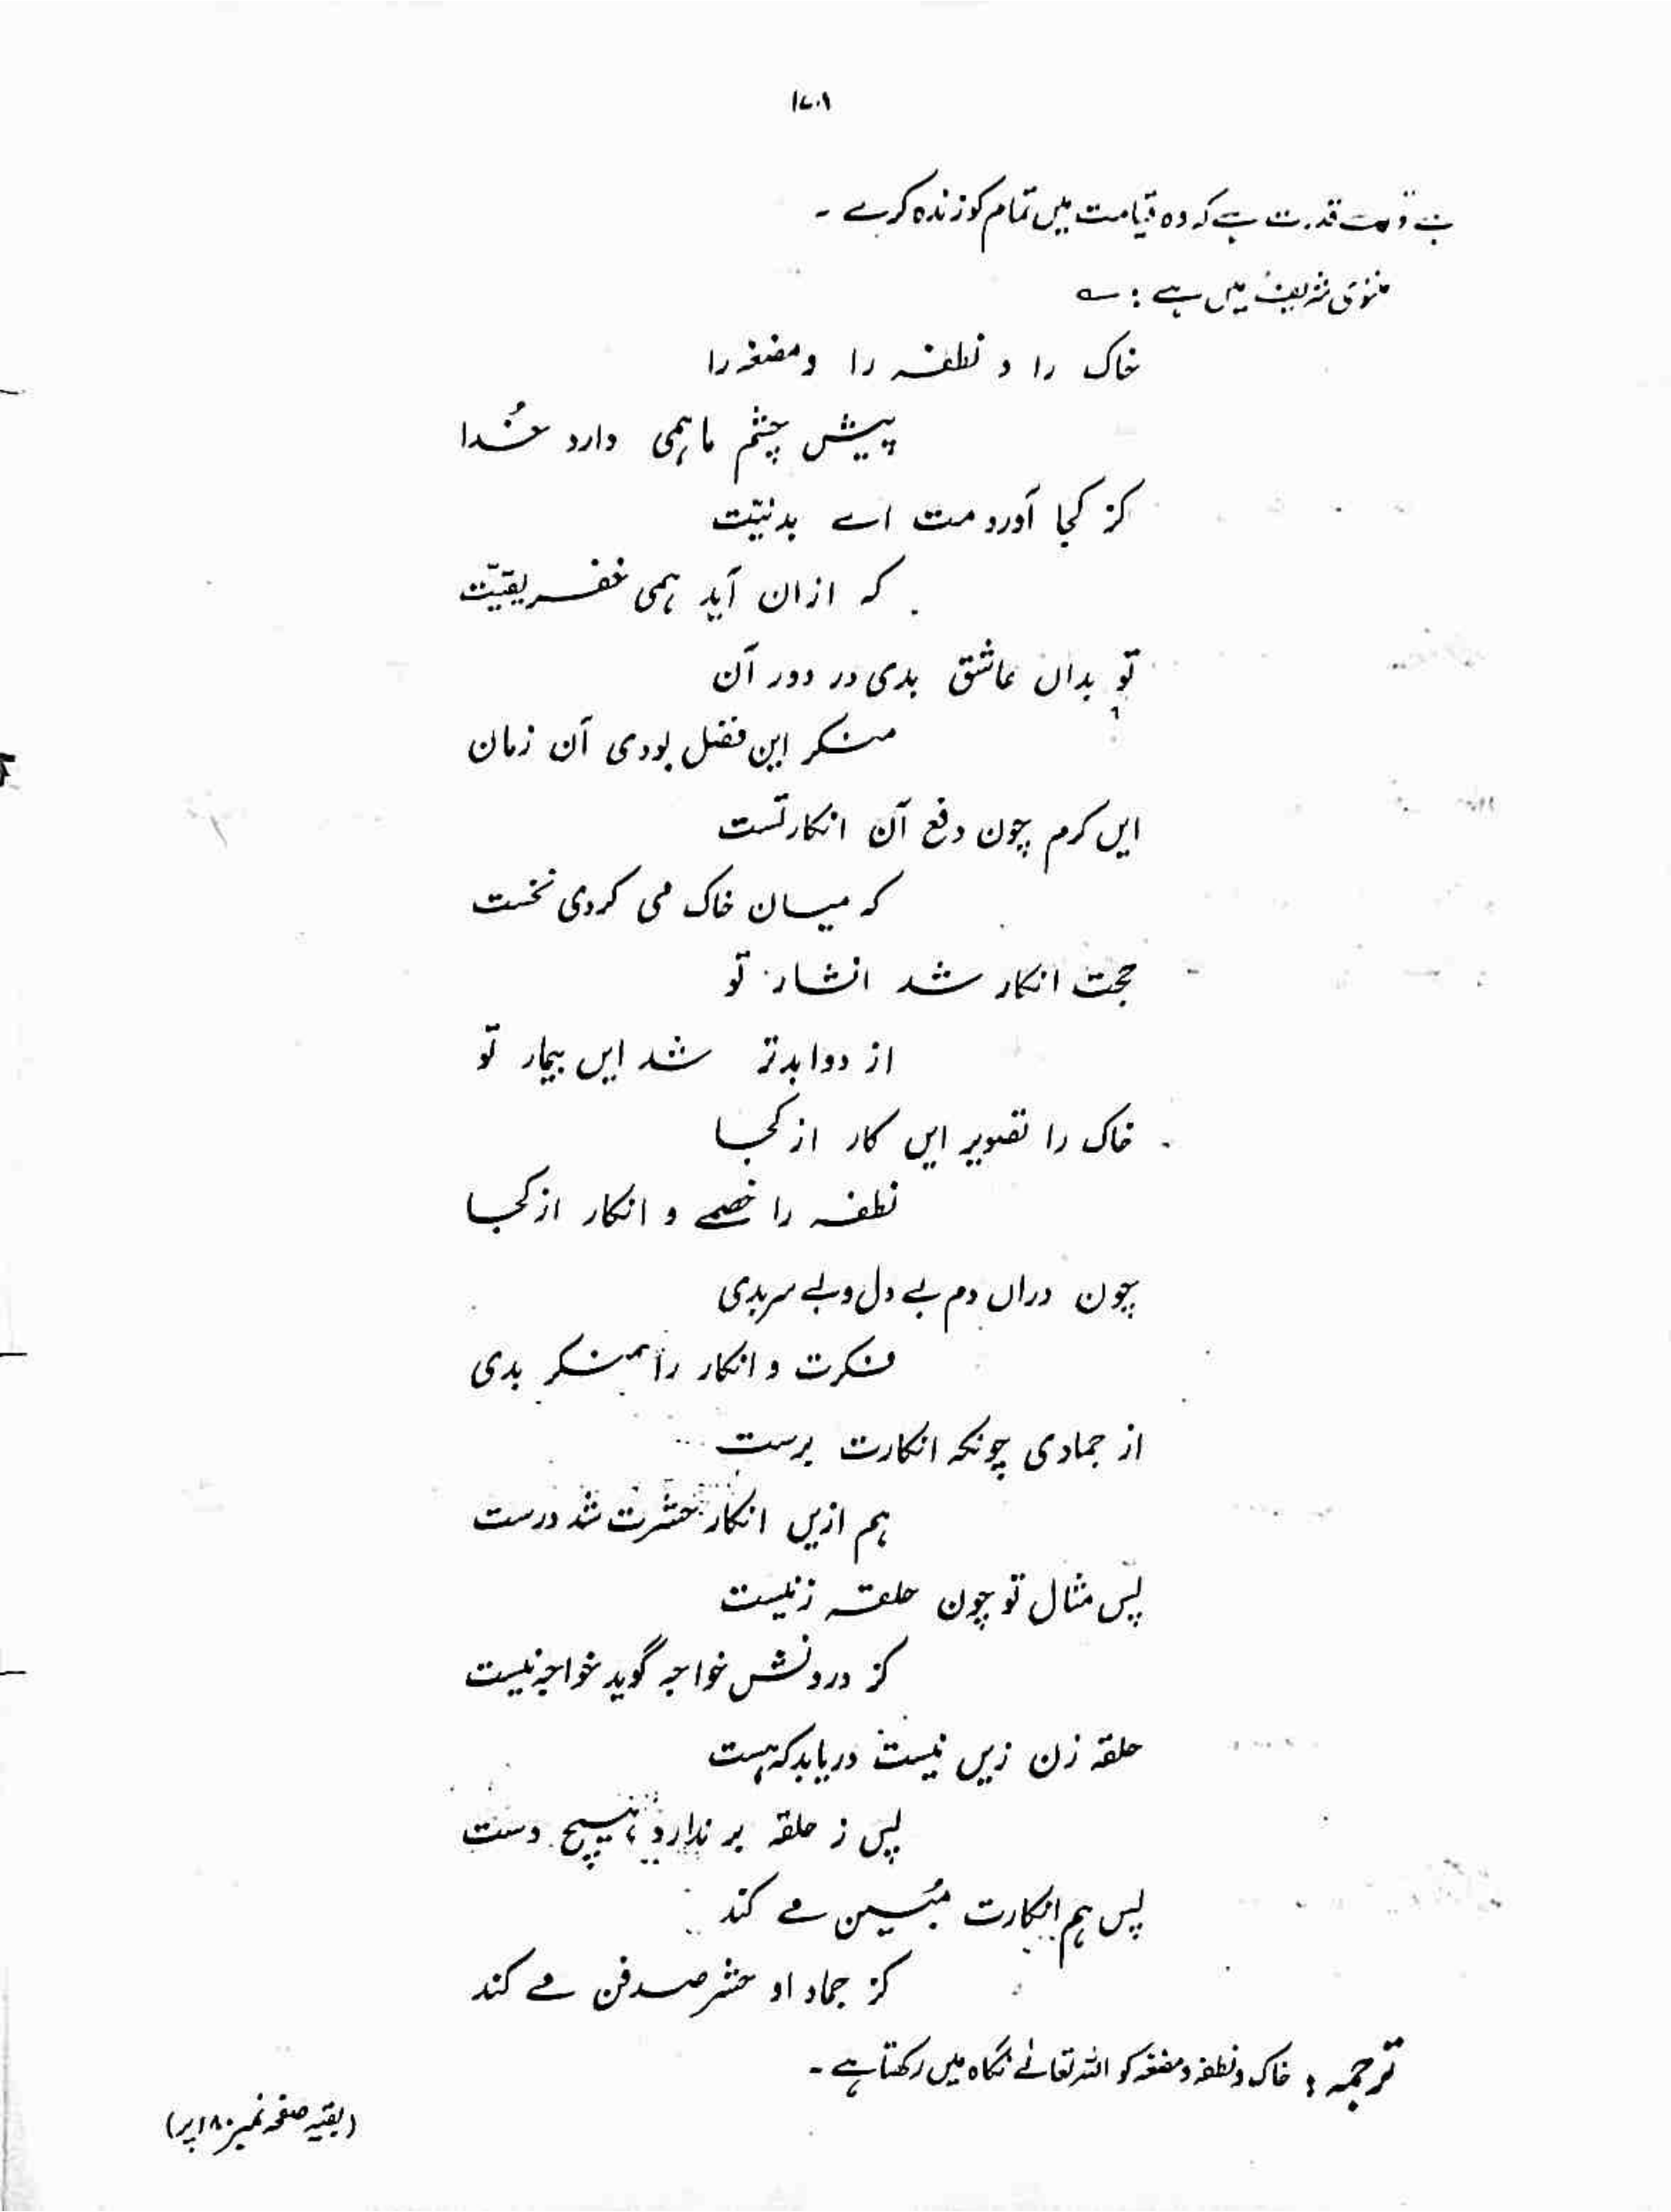 قدرت ہے کہ وہ قیامت میں تمام کو زندہ کرے ۔
مثنوی شریف میں ہے : ؎
خاک را و نطفہ را و مضغہ را
پیش چشم ما ہمی دارد خُدا
کز کجا آوردمت اے بدنیّت
کہ ازان آید ہمی خفریقیّت
تو بداں عاشق بدی در دور آن
منکر این فضل بودی آن زمان
ایں کرم چون دفع آن انکار تست
کہ میان خاک می کردی نخست
حجت انکار شد انشار تو
از دوا بدتر شد ایں بیمار تو
خاک را تصویر ایں کار از کجا
نطفہ را خصمے و انکار از کجا
چون دراں دم بے دل و بے سر بدی
فکرت و انکار را منکر بدی
از جمادی چونکہ انکارت برست
ہم ازیں انکار حشرت شد درست
پس مثال تو چون حلقہ زنیست
کز درونش خواجہ گوید خواجہ نیست
حلقہ زن زیں نیست دریابد کہ ہست
پس ز حلقہ بر ندارد ہیچ دست
پس ہم انکارت مُبین مے کند
کز جماد او حشر صد فن مے کند
ترجمہ : خاک و نطفہ و مضغہ کو اللہ تعالےٰ نگاہ میں رکھتا ہے ۔
(بقیہ صفحہ نمبر ۱۸۰ پر)